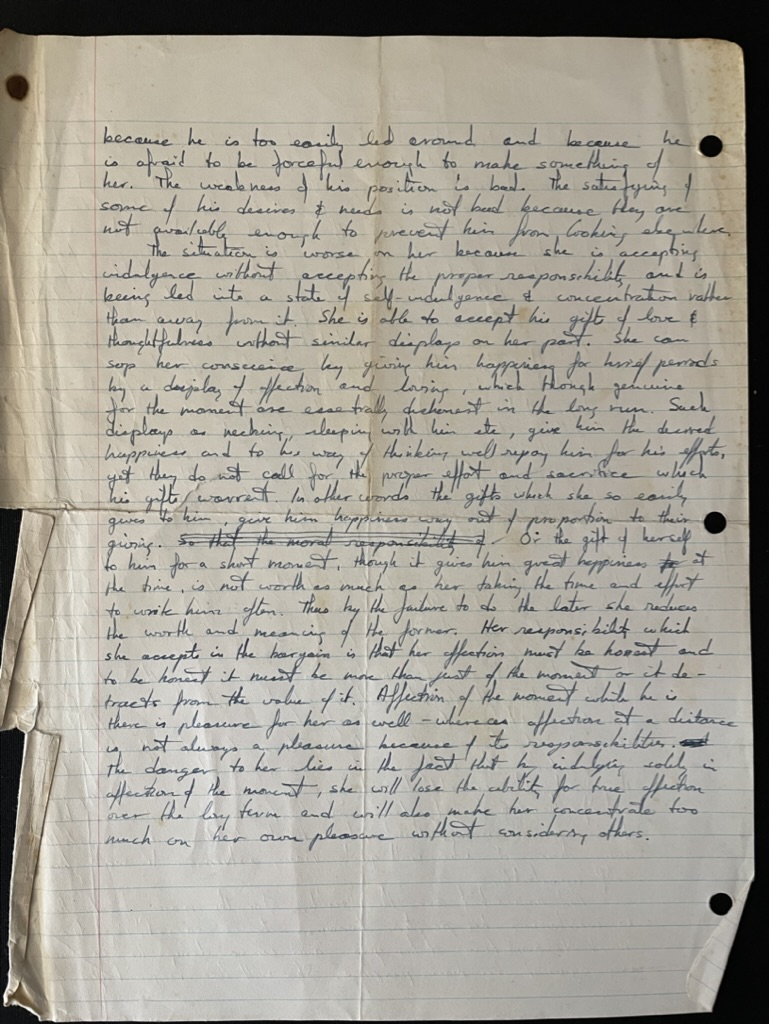 because he is too easily led around and because he
is afraid to be forceful enough to make something of
her. The weakness of his position is bad. The satisfying of
some of his desires & needs is not bad because they are
not availably enough to prevent him from looking elsewhere.
The situation is worse on her because she is accepting
indulgence without accepting the proper responsibility and is
being led into a state of self-indulgence & concentration rather
than away from it. She is able to accept his gifts of love &
thoughtfulness without similar displays on her part. She can
sop her conscience by giving him happiness for brief periods
by a display of affection and loving, which though genuine
for the moment are essentially dishonest in the long run. Such
displays as necking, sleeping with him etc, give him the desired
happiness and to his way of thinking well repay him for his efforts,
yet they do not call for the proper effort and sacrifice which
his gifts warrent. In other words the gifts which she so easily
gives to him, give him happiness way out of proportion to their
giving. So that the moral responsibility of Or the gift of herself
to him for a short moment, though it gives him great happiness at
the time, is not worth as much as her taking the time and effort
to write him often. Thus by the failure to do the later she reduces
the worth and meaning of the former. Her responsibility which
she accepts in the bargain is that her affection must be honest and
to be honest it must be more than just of the moment or it de-
tracts from the value of it. Affection of the moment while he is
there is pleasure for her as well - whereas affection at a distance
is not always a pleasure because of its responsibilities.
The danger to her lies in the fact that by indulging solely in
affection of the moment, she will lose the ability for true affection
over the long term and will also make her concentrate too
much on her own pleasure without considering others.